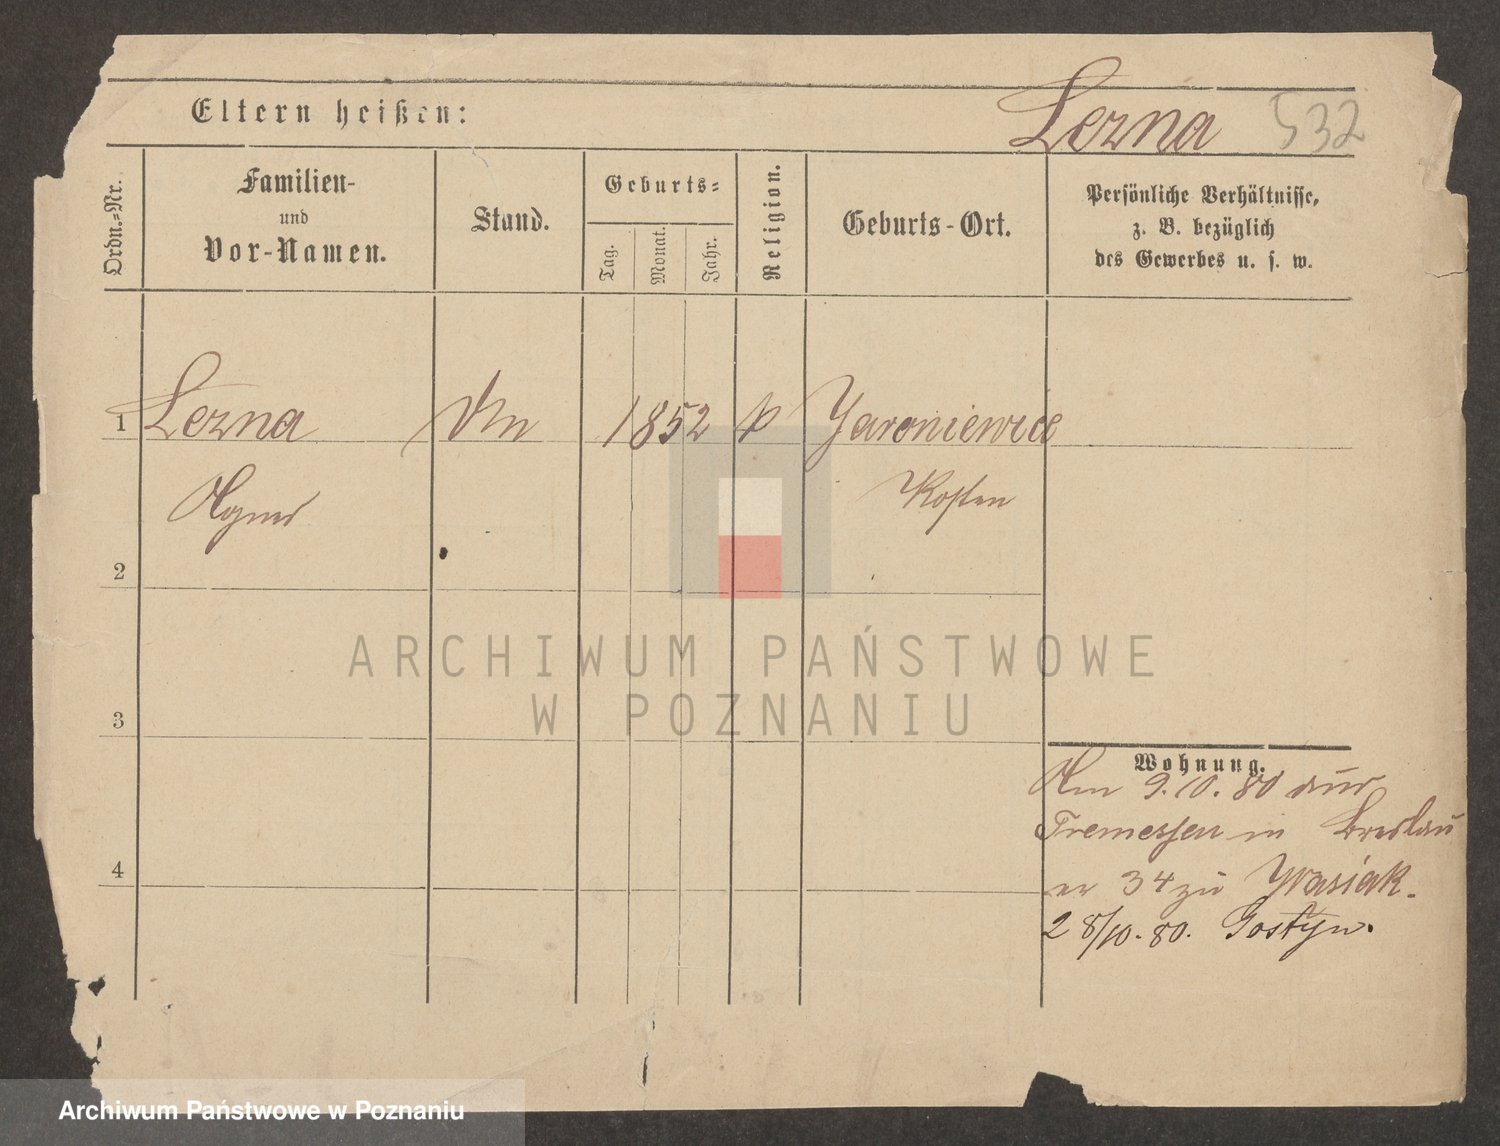 Eltern heißen:
Lezna 532
Ordn.-Nr.
Familien-
und
Vor-Namen.
Stand.
Geburts-
Tag.
Monat.
Jahr.
Religion.
Geburts-Ort.
Persönliche Verhältnisse,
z. B. bezüglich
des Gewerbes u. s. w.
1 Lezna 1852 k Jaroniewice
Agnes Kosten
2
3
4
Wohnung.
Am 9.10.80 aus
Tremessen in Breslau
34 zu Wasiak.
28/10.80. Gostyn.
ARCHIWUM PAŃSTWOWE
W POZNANIU
Archiwum Państwowe w Poznaniu